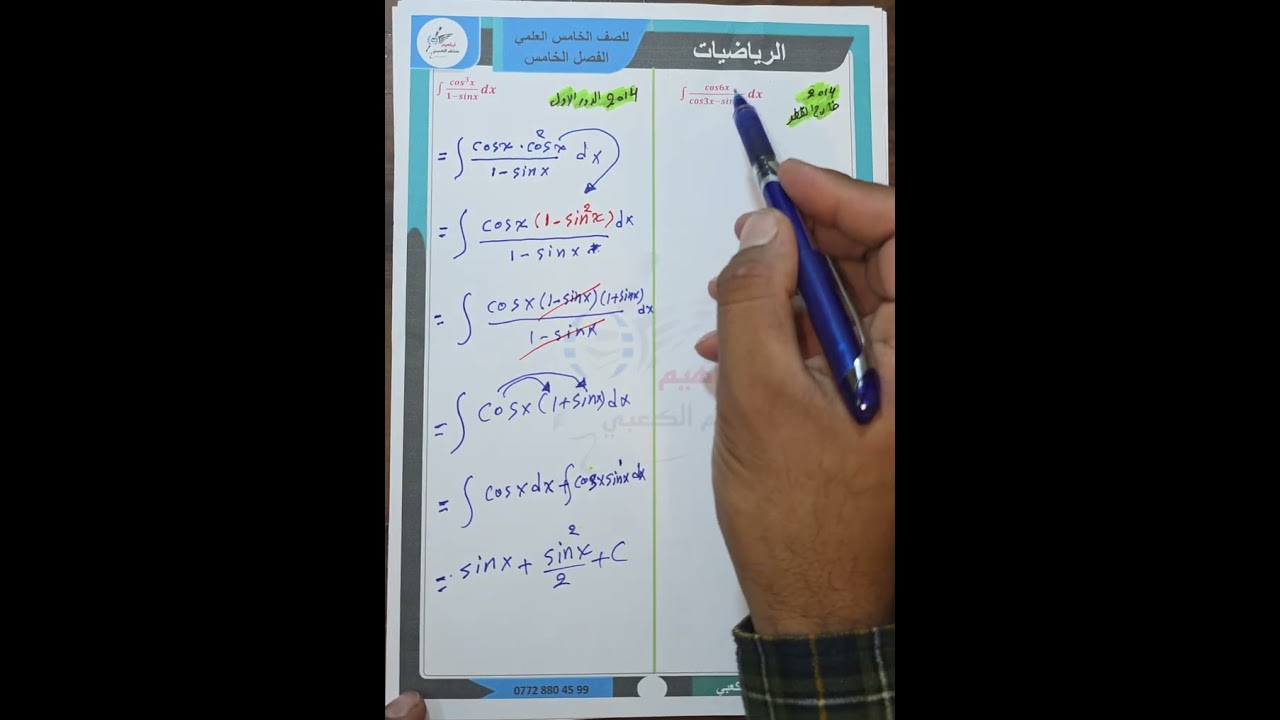 للصف الخامس العلمي
الفصل الخامس
الرياضيات
∫ cos³x / 1−sinx dx
2014 الدور الاول
= ∫ cosx · cos²x / 1 − sinx dx
= ∫ cosx (1 − sin²x) dx / 1 − sinx
= ∫ cosx (1−sinx)(1+sinx) / 1 − sinx dx
= ∫ cosx (1+sinx) dx
= ∫ cosx dx + ∫ cosx sin¹x dx
= sinx + sin²x / 2 + C
∫ cos6x / cos3x−sin dx
2014
خارج القطر
هيم
م الكعبي
0772 880 45 99
كعبي